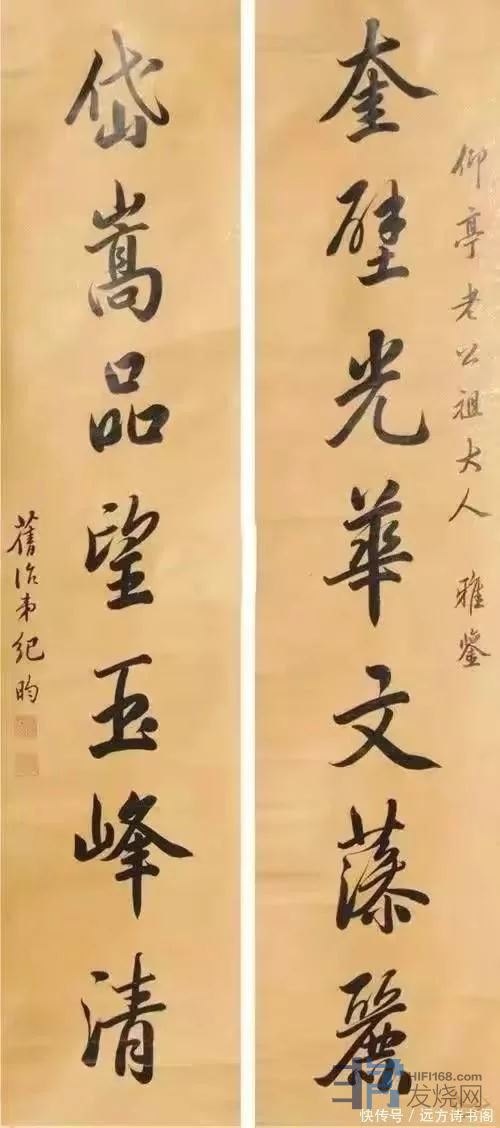 仰亭老公祖大人 雅鑒
奎壁光華文藻麗
岱嵩品望玉峰清
舊治弟紀昀
HIFI168.com
发烧网
快传号 / 远方诗书阁